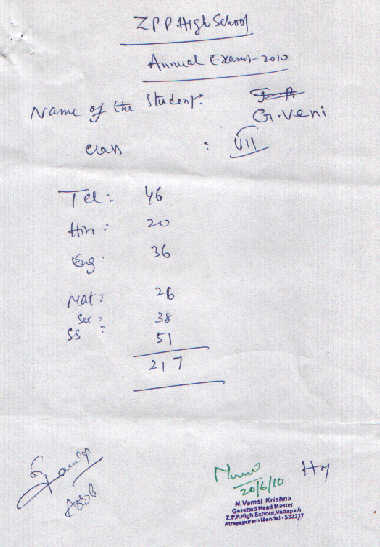 ZPP High School
Annual Exams-2010
Name of the Student:
G. Veni
class : VII
Tel: 46
Hin: 20
Eng: 36
Mat: 26
Sec: 38
SS: 51
217
20/6/10
HM
Gazetted Head Master
Z.P.P.High School,